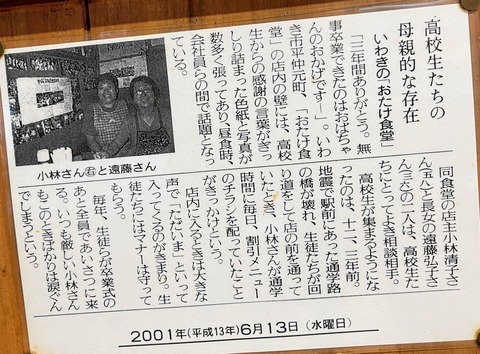 高校生たちの
母親的な存在
いわきの「おたけ食堂」
「三年間ありがとう。無
事卒業できたのはおばちゃ
んのおかげです!―」。いわ
き市平仲元町、「おたけ食
堂」の店内の壁には、高校
生からの感謝の言葉がぎっ
しり詰まった色紙と写真が
数多く張ってあり、昼食時、
会社員らの間で話題となっ
ている。
小林さん㊨と遠藤さん
同食堂の店主小林清子さ
ん(五八)と長女の遠藤弘子さ
ん(三六)の二人は、高校生た
ちにとってよき相談相手。
高校生が集まるようにな
ったのは、十二、三年前。
地震で駅前にあった通学路
の橋が壊れ、生徒たちが回
り道をして店の前を通って
いたとき、小林さんが通学
時間に毎日、割引メニュー
のチラシを配っていたこと
がきっかけという。
店内に入るときは大きな
声で「ただいま」といって
入ってくるのがきまり。生
徒たちにはマナーは守って
もらう。
毎年、生徒らが卒業式の
あと全員であいさつに来
る。いつも厳しい小林さん
もこのときばかりは涙ぐん
でしまうという。
2001年(平成13年)6月13日(水曜日)